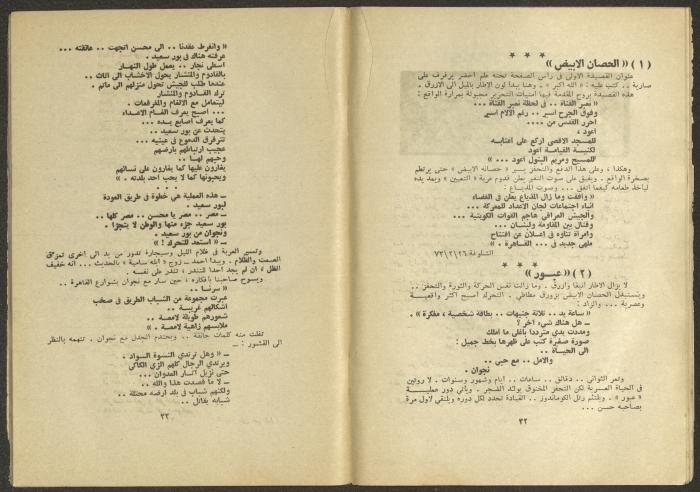 * * *
( ١ ) « الحصان الابيض »
عنوان القصيدة الاولى في رأس الصفحة تحته علم اخضر يرفرف على
سارية .. كتب عليه : « الله اكبر » . وهنا يبدا لون الاطار بالليل الى الازرق .
هذه القصيدة بروح المقدمة فيها امنيات التحرير مجبولة بمرارة الواقع :
« نصر القناة .. في لحظة نصر القناة ...
وفوق الجرح اسير .. رغم الآلام اسير
احرر القدس من ....
اعود ،
للمسجد الاقصى اركع على اعتابه
لكنيسة القيامة اعود
للمسيح ومريم البتول اعود ... »
وهكذا ، وعلى هذا الدفع والتحفز يسير « حصانه الابيض » حتى يرتطم
بصخرة الواقع . ويفيق على صوت النفير يعلن قدوم عربة « التعيين » ويمد يده
ليأخذ طعامه كيفما اتفق ... وصوت المذياع :
« وافقت وما زال المذياع يعلن في الفضاء
انباء اجتماعات لجان الاعداد للمعركة ...
والجيش العراقي هاجم القوات الكويتية ...
وقتال بين المقاومة ولبنان ...
وامرأة تتأوه في اعلان عن افتتاح
ملهى جديد في ... القاهرة . »
السلوفة ٧٣/٢/٢٦
* * *
( ٢ ) « عبور »
لا يزال الاطار انيقا وازرق . وما زالت نفس الحركة والثورة والتحفز ..
ويستبدل الحصان الابيض بزورق مطاطي . التحرك اصبح اكثر واقعية
وعصرية ... والزاد :
« ساعة يد .. ثلاثة جنيهات .. بطاقة شخصية ، مفكرة » .
ـ هل هناك شيء آخر ؟
ومددت يدي مترددا باغلى ما املك
صورة صغيرة كتب على ظهرها بخط جميل :
الى الحياة ..
والامل .. مع حبي ..
نجوان .
وتمر الثواني .. دقائق .. ساعات .. ايام وشهور وسنوات . لا روتين
في الحياة العسكرية لكن التحفز المخنوق يولد الضجر . ويأتي دور عملية
« عبور » . ويلتئم رتل الكوماندوز .. القيادة تحدد لكل دوره ويلتقي لاول مرة
بصاحبه حسن ...
٣٢
« وانفرط عقدنا .. الى محسن اتجهت .. عانقته ...
عرفته هناك في بور سعيد .
اسطى نجار .. يعمل طول النهار
بالقادوم والمنشار يحول الاخشاب الى اثاث ..
عندما طلب للجيش تحول منزلهم الى ماتم .
ترك القادوم والمنشار
ليتعامل مع الالغام والمفرقعات .
... اصبح يعرف الغام الاعداء
كما يعرف اصابع يده ...
يتحدث عن بور سعيد ..
تترقرق الدموع في عينيه ...
عجيب ارتباطهم بارضهم
وحبهم لها ..
يغارون عليها كما يغارون على نسائهم
ويحبونها كما لا يحب احد بلدته . »
. . .
ـ هذه العملية هي خطوة في طريق العودة
لبور سعيد .
ـ مصر .. مصر يا محسن .. مصر كلها ..
بور سعيد جزء منها والوطن لا يتجزأ .
ونجوان من بور سعيد .
ـ « استعد للتحرك ! »
وتسير العربة في ظلام الليل وسيجارة تدور من يد الى اخرى تمزق
الصمت والظلام . ويبدا احمد ـ زوج « ابله سامية » بالحديث ... انه خفيف
الظل ، ان لم يجد احدا للتندر ، تندر على نفسه .
ويسوح صاحبنا بأفكاره ، حين سار مع نجوان بشوارع القاهرة ..
« سرنا ..
عبرت مجموعة من الشباب الطريق في صخب
اشكالهم غريبة ..
شعورهم طويلة لامعة ..
ملابسهم زاهية لامعة . »
تفلت منه كلمات حانقة .. ويحتدم الجدل مع نجوان . تتهمه بالنظر
الى القشور : ـ
ـ « وهل ترتدي النسوة السواد .
ويرتدي الرجال كلهم الزي الكاكي
حتى نزيل آثار العدوان ...
ـ لا ما قصدت هذا والله ..
ولكنهم شباب في بلد ارضه محتلة ..
شبابه يقاتل ..
٣٣